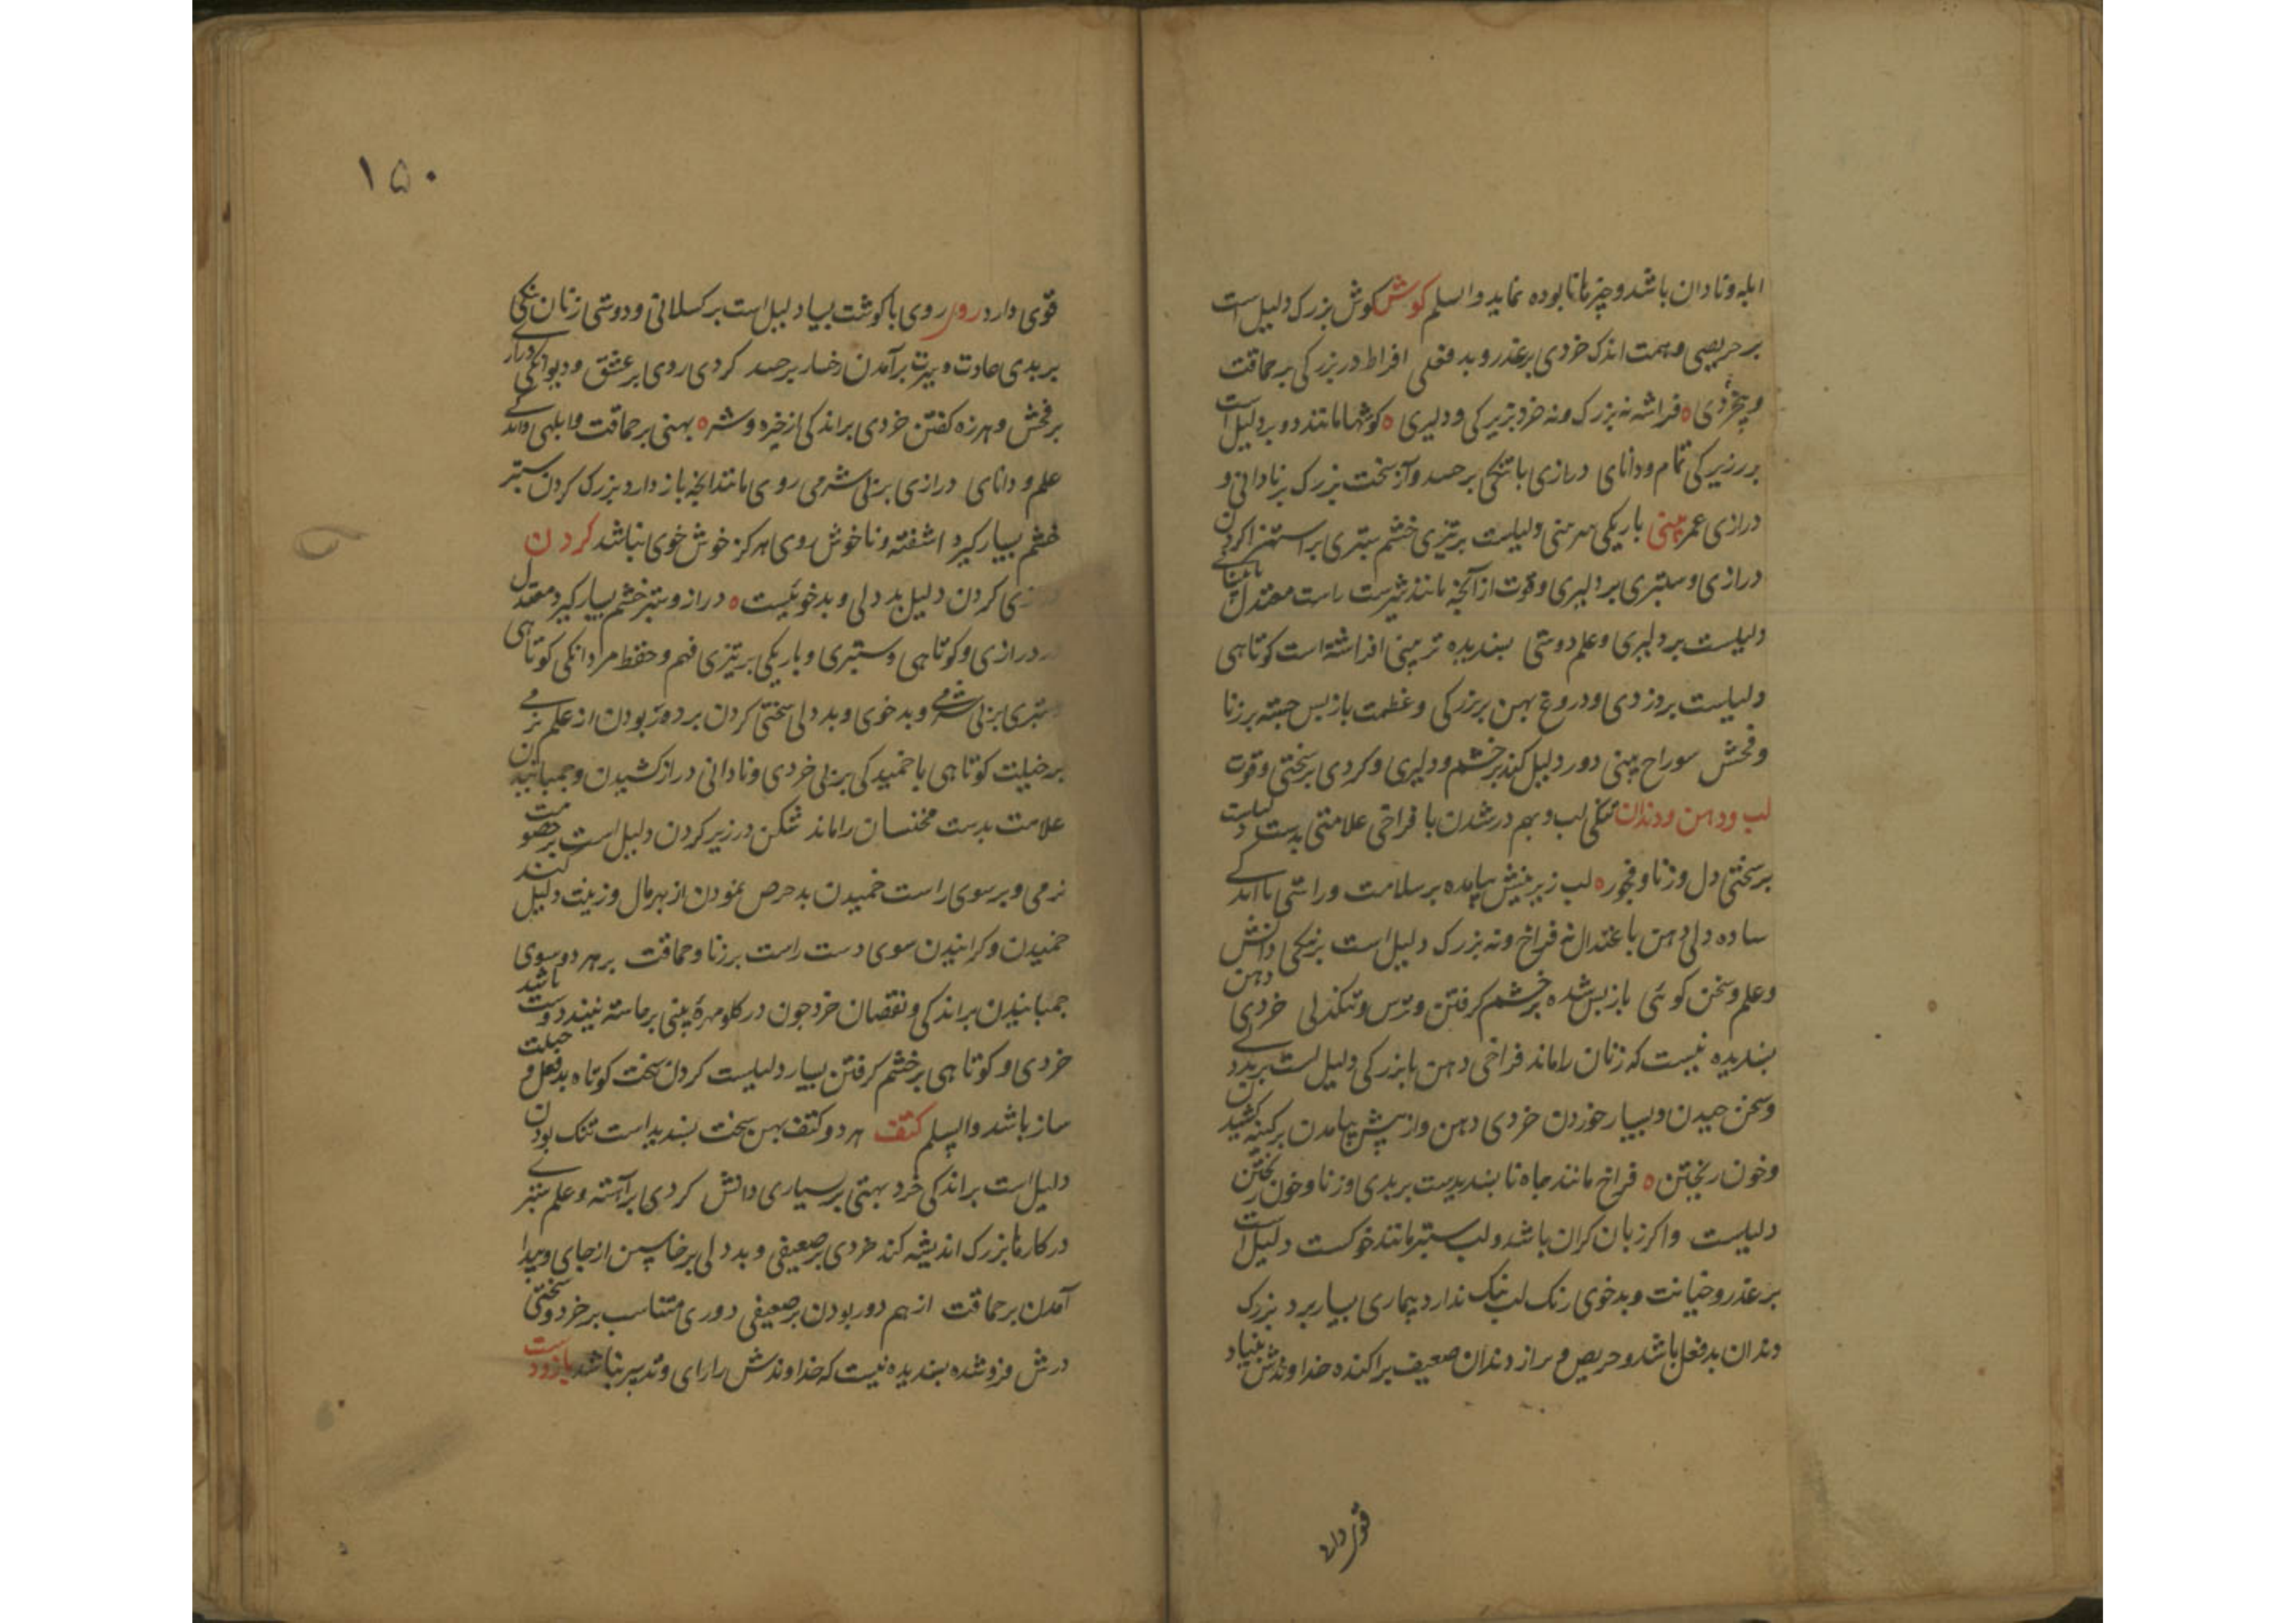 ابله و نادان باشد و چیزها نابوده نماید والسلم کوش کوش بزرک دلیل است
بر حریصی و همت اندک خردی بر غدر و بد فعلی افراط در بزرکی بر حماقت
و بیخردی ه فراشته نه بزرک و نه خرد بزیرکی و دلیری ه کوشها مانند دو بر دلیل است
بر زیرکی تمام و دانای درازی با تنکی بر حسد و آز سخت بزرک بر نادانی و
درازی عمر بینی باریکی سر بینی دلیلست بر تیزی خشم ستبری بر استهزا کردن
درازی و ستبری بر دلیری و قوت از آنچه مانند شیرست راست معتدل با بینای
دلیلست بر دلیری و علم دوستی پسندیده تر بینی افراشته است کوتاهی
دلیلست بر دزدی و دروغ پهن بر بزرکی و عظمت باز پس جسته بر زنا
و فحش سوراخ بینی دور دلیل کند بر خشم و دلیری و کردی بر سختی و قوت
لب و دهن و دندان تنکی لب و بهم در شدن با فراخی علامتی بدست دلیلست
بر سختی دل و زنا و فجور ه لب زیرینش بیامده بر سلامت و راستی با اندکی
ساده دلی دهن باعتدال نه فراخ و نه بزرک دلیل است بر نیکی دانش
و علم و سخن کوئی باز پس شده بر خشم کرفتن و ترس و تنکدلی خردی دهن
پسندیده نیست که زنان را ماند فراخی دهن با بزرکی دلیل است بر بددلی
و سخن چیدن و بسیار خوردن خردی دهن و از پیش بیامدن بر کینه کشیدن
و خون ریختن ه فراخ مانند چاه نا پسندیدست بر بدی و زنا و خون ریختن
دلیلست و اکر زبان کران باشد و لب ستبر مانند خوکست دلیل است
بر غدر و خیانت و بدخوی رنک لب نیک ندارد بیماری بسیار برد بزرک
دندان بد فعل باشد و حریص و دراز دندان ضعیف پراکنده خداوندش بنیاد
قوی دارد
۱۵۰
قوی دارد روی روی با کوشت بسیار دلیل است بر کسلانی و دوستی زنان تنکی
بر بدی عادت و سیرت بر آمدن رخسار بر حسد کردی روی بر عشق و دیوانکی درازی
بر فحش و هرزه کفتن خردی بر اندکی از خیره و شره ه پهنی بر حماقت و ابلهی و اندکی
علم و دانای درازی بر بی شرمی روی مانند آنچه باز دارد بزرک کردن ستبر
خشم بسیار کیرد اشفته و ناخوش روی هرکز خوش خوی نباشد کردن
درازی کردن دلیل بد دلی و بدخوئیست ه دراز و ستبر خشم بسیار کیرد معتدل
در درازی و کوتاهی و ستبری و باریکی بر تیزی فهم و حفظ مردانکی کوتاهی
ستبری بر بی شرمی و بد خوی و بد دلی سختی کردن بر دور بودن از علم نرمی
بر خیلت کوتاهی با خمیدکی بر بی خردی و نادانی دراز کشیدن و جمبانیدن
علامت بدست مخنسان را ماند شکن در زیر کردن دلیل است بر خصومت کنند
نرمی و بر سوی راست خمیدن بد حرص نمودن از بهر مال و زینت دلیل
خمیدن و کرانیدن سوی دست راست بر زنا و حماقت بر هر دو سوی
جمبانیدن بر اندکی و نقصان خرد چون در کلو مهرهٔ بینی بر ماسته نیند دوست باشد
خردی و کوتاهی بر خشم کرفتن بسیار دلیلست کردن سخت کوتاه بد فعل و حیلت
ساز باشد والسلم کتف هر دو کتف پهن سخت پسندیداست تنک بودن
دلیل است بر اندکی خرد پهنی بر بسیاری دانش کردی بر آهسته و علم ستبری
در کارها بزرک اندیشه کند خردی بر ضعیفی و بد دلی بر خاستن از جای و پیدا
آمدن بر حماقت از هم دور بودن بر ضعیفی دوری متناسب بر خرد و سختی
درش فرو شده پسندیده نیست که خداوندش را رای و تدبیر نباشد بازو دست